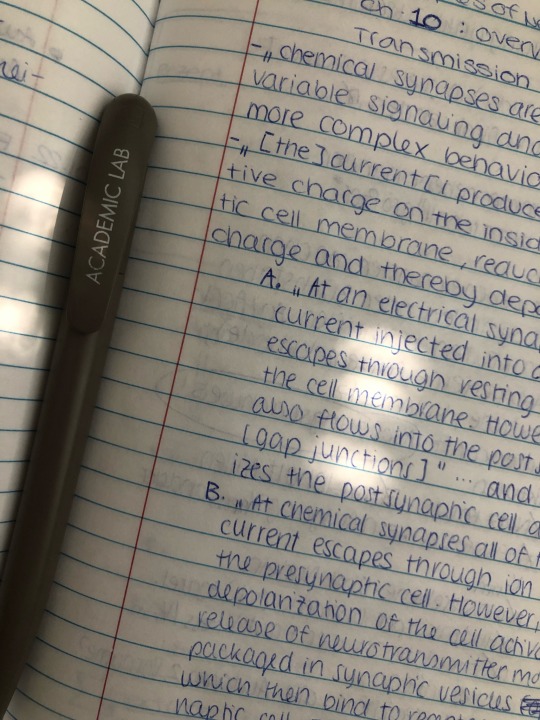 ACADEMIC LAB
Ch. 10 : over
Transmission
-„chemical synapses are
variable signaling and
more complex behavio
-„[the] current [i produce
tive charge on the insid
tic cell membrane, reduc
charge and thereby depo
A. „At an electrical syna
current injected into a
escapes through resting
the cell membrane. Howe
also flows into the posts
[gap junctions]" ... and
izes the postsynaptic cell
B. „At chemical synapses all of t
current escapes through ion
the presynaptic cell. However,
depolarization of the cell activa
release of neurotransmitter mo
packaged in synaptic vesicles
which then bind to recep
naptic cell